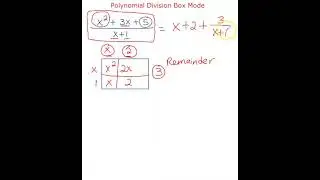 Polynomial Division Box Mode
x² + 3x + 5 = x + 2 + 3
x+1 x+7
x 2
x x² 2x 3 Remainder
1 x 2